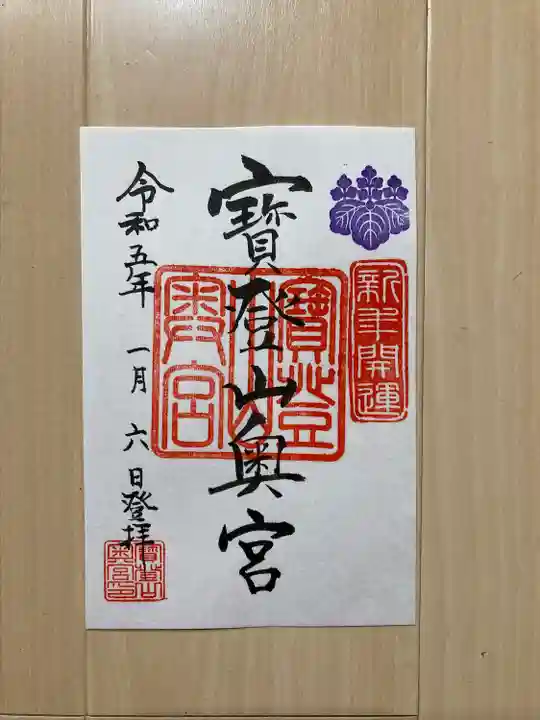 新年開運
寶登山奥宮
寶登山奥宮
令和五年 一月 六日登拝